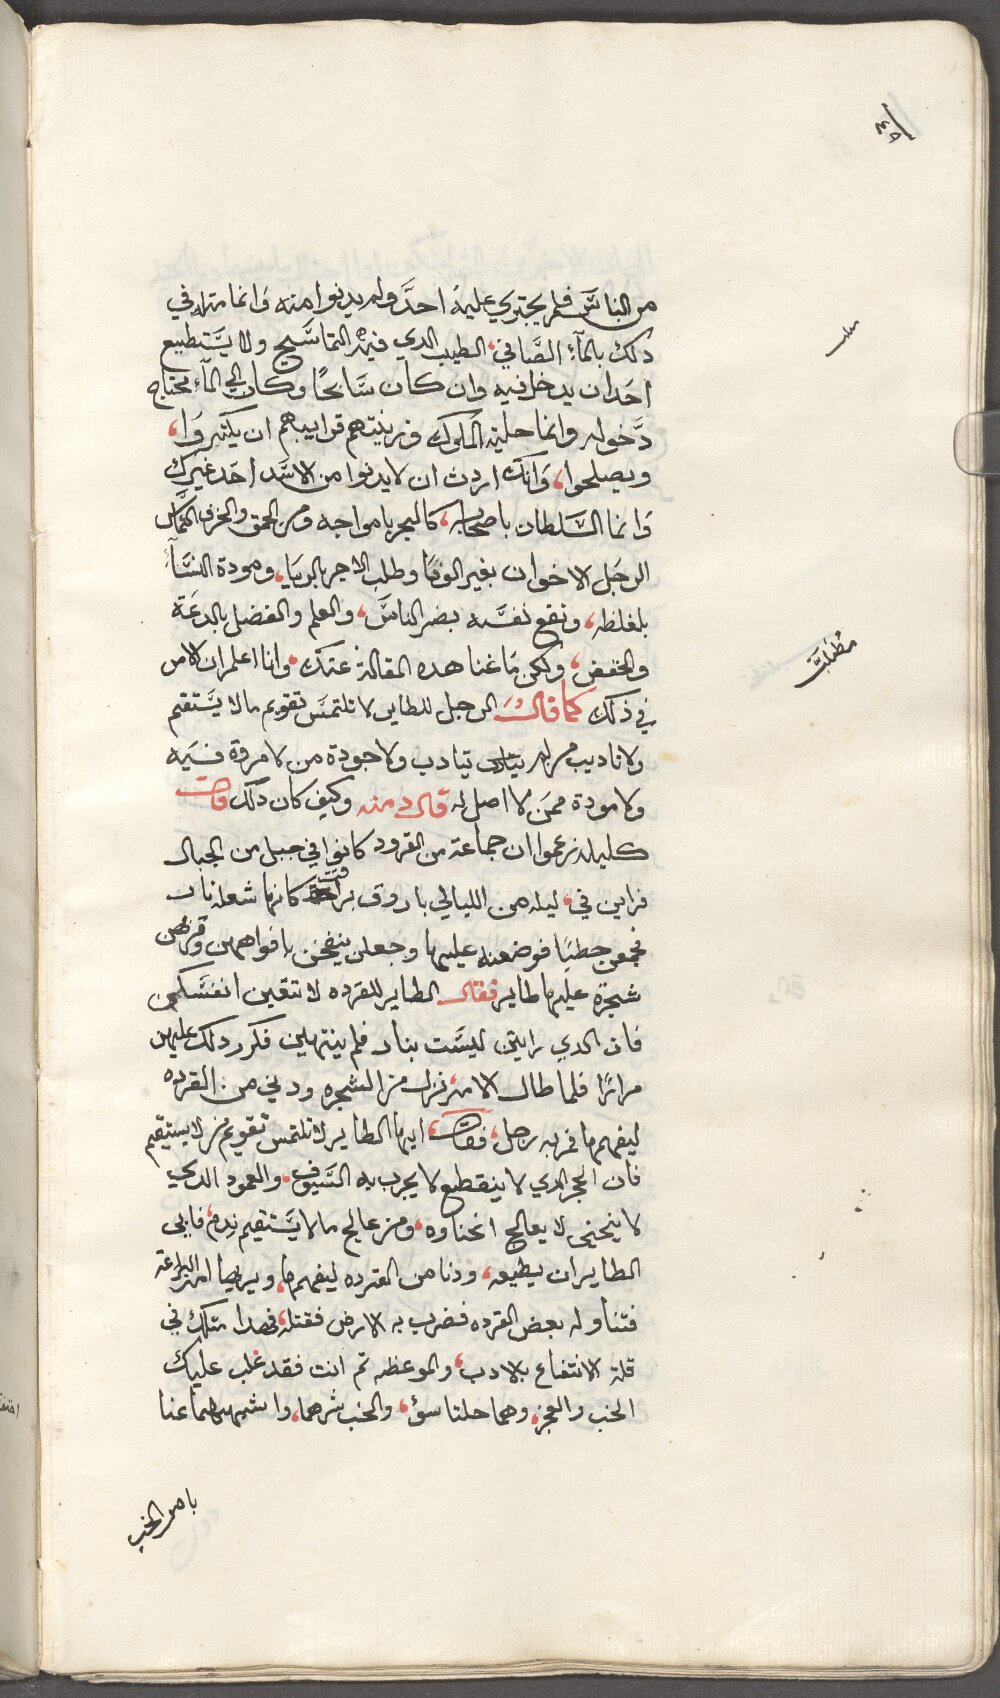 ٤٩
من الناس فلم يجتري عليه احد ولم يدنوا منه وانما مثله في
مطلب
ذلك بالمآء الصافي، الطيب الدي فيه التماسيح ولا يستطيع
احد ان يدخل فيه وان كان سابحًا وكان الي المآء محتاج
دخوله وانما حلية الملوك وزينتهم قرايبهم ان يكثروا،
ويصلحوا، وانك اردت ان لا يدنوا من الاسد احد غيرك
وانما السلطان باصحابه، كالبحر بامواجه ومن الحمق والخرف التماس
الرجل الاخوان بغير الوفا وطلب الاجر بالريا، ومودة النسآء
بلغلظه، ونفع نفسه بضر الناس، والعلم والفضل بالدعة
مطلب
والخفض، ولكن ما غنا هده المقالة عنك، وانا اعلم ان الامر
في ذلك كما قال الرجل للطاير لا تلتمس تقويم ما لا يستقيم
ولا تاديب من لم يتادب ولا جودة من لا مروة فيه
ولا مودة ممن لا اصل له قال دمنه وكيف كان ذلك قال
كليله زعموا ان جماعة من القرود كانوا في جبل من الجبال
فراين في، ليله من الليالي بارد وقت يراعه كانها شعلة نار
فجمعن حطبًا فوضعنه عليها وجعلن ينفخن بافواههن وقربهن
شجرة عليها طاير فقال الطاير للقرده لا تتعبن انفسكن
فان الدي رايتن ليست بنار فلم ينتهين فكرر دلك عليهن
مرارًا فلما طال الامر، نزل من الشجره ودني من القرده
ليفهمها فمر به رجل، فقال، ايها الطاير لا تلتمس تقويم من لا يستقيم
فان الحجر الدي لا ينقطع لا يجرب به السيوف، والعمود الدي
لا ينحني لا يعالج انحناوه، ومن عالج ما لا يستقيم ندم، فابي
الطاير ان يطيعه، ودنا من القرده ليفهمها، ويريها امر اليراعة
فتناوله بعض القرده فضرب به الارض فقتله، فهدا مثلك في
قلة الانتفاع بالادب، والموعظه ثم انت فقد غلب عليك
الخب والعجز، وهما خلتا سوء، والخب شرهما، واشبههما عنا
بامر الخب